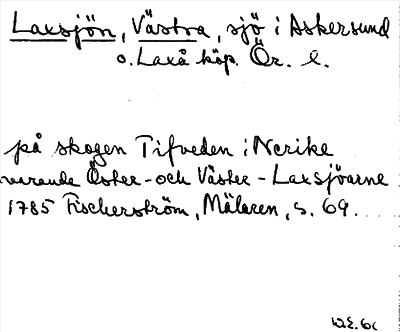 Laxsjön, Västra, sjö i Askersund
o. Laxå köp. Ör. l.
på skogen Tifveden i Nerike
warande Öster- och Väster-Laxsjöarne
1785 Fischerström, Mälaren, s. 69.